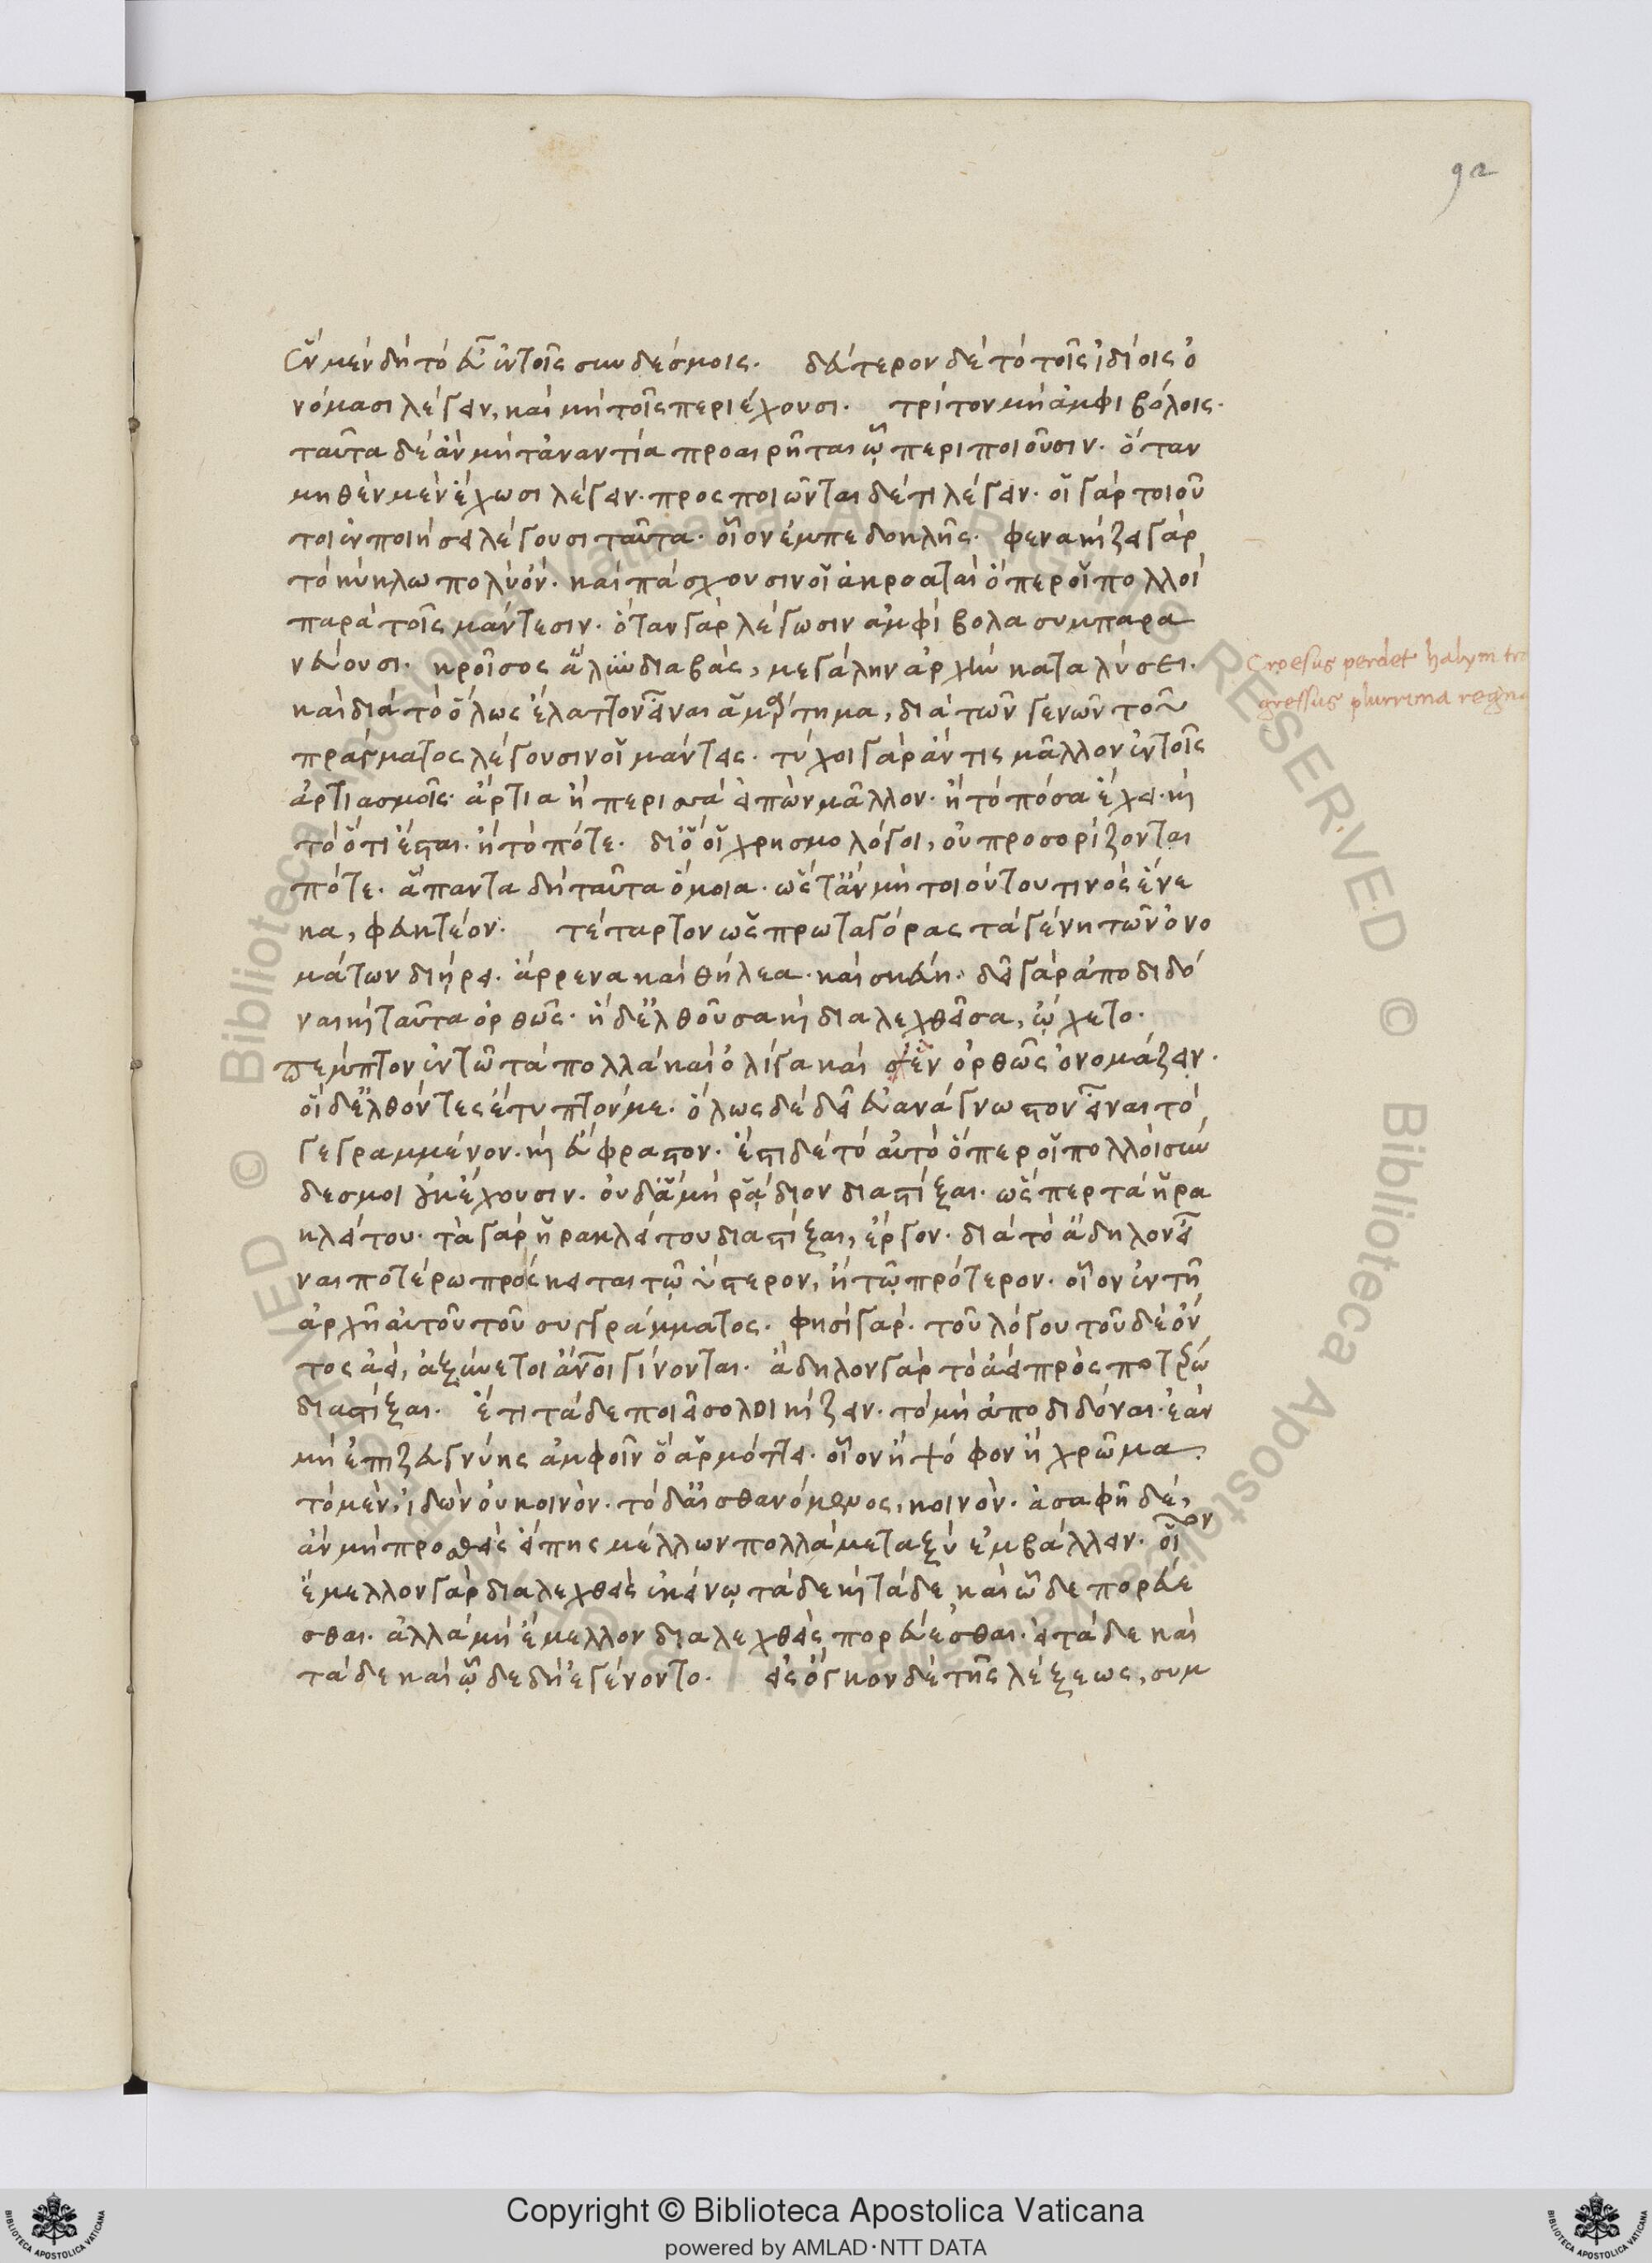 92
ἓν μὲν δὴ τὸ εὖ ἐν τοῖς συνδέσμοις. δεύτερον δὲ τὸ τοῖς ἰδίοις ὀ
νόμασι λέγειν, καὶ μὴ τοῖς περιέχουσι. τρίτον μὴ ἀμφιβόλοις.
ταῦτα δὲ ἂν μὴ τἀναντία προαιρῆται ᾧ περιποιοῦσιν. ὅταν
μηθὲν μὲν ἔχωσι λέγειν. προσποιῶνται δέ τι λέγειν. οἱ γὰρ τοιοῦ
τοι ἐν ποιήσει λέγουσι ταῦτα. οἷον ἐμπεδοκλῆς. φενακίζει γὰρ
τὸ κύκλω πολὺ ὄν. καὶ πάσχουσιν οἱ ἀκροαταὶ ὅπερ οἱ πολλοὶ
παρὰ τοῖς μάντεσιν. ὅταν γὰρ λέγωσιν ἀμφίβολα συμπαρα
νεύουσι. κροῖσος ἅλυν διαβὰς, μεγάλην ἀρχὴν καταλύσει.
Croesus perdet halym tra
gressus plurima regna
καὶ διὰ τὸ ὅλως ἔλαττον εἶναι ἁμάρτημα, διὰ τῶν γενῶν τοῦ
πράγματος λέγουσιν οἱ μάντεις. τύχοι γὰρ ἄν τις μᾶλλον ἐν τοῖς
ἀρτιασμοῖς. ἄρτια ἢ περισσὰ εἰπὼν μᾶλλον. ἢ τὸ πόσα ἔχει. κὶ
τὸ ὅτι ἔσται. ἢ τὸ πότε. διὸ οἱ χρησμολόγοι, οὐ προσορίζονται
πότε. ἅπαντα δὴ ταῦτα ὅμοια. ὥστ' ἂν μὴ τοιούτου τινὸς ἕνε
κα, φευκτέον. τέταρτον ὡς πρωταγόρας τὰ γένη τῶν ὀνο
μάτων διήρει. ἄρρενα καὶ θήλεα. καὶ σκεύη. δεῖ γὰρ ἀποδιδό
ναι κὶ ταῦτα ὀρθῶς. ἡ δ' ἐλθοῦσα κὶ διαλεχθεῖσα, ᾤχετο.
πέμπτον ἐν τῶ τὰ πολλὰ καὶ ὀλίγα καὶ ἓν ὀρθῶς ὀνομάζειν.
οἱ δ' ἐλθόντες ἔτυπτόν με. ὅλως δὲ δεῖ εὐανάγνωστον εἶναι τὸ
γεγραμμένον. κὶ εὔφραστον. ἔστι δὲ τὸ αὐτὸ ὅπερ οἱ πολλοὶ σύν
δεσμοι οὐκ ἔχουσιν. οὐδ' ἃ μὴ ῥᾴδιον διαστίξαι. ὥσπερ τὰ ἡρα
κλείτου. τὰ γὰρ ἡρακλείτου διαστίξαι, ἔργον. διὰ τὸ ἄδηλον εἶ
ναι ποτέρω πρόσκειται τῷ ὕστερον, ἢ τῷ πρότερον. οἷον ἐν τῆ
ἀρχῆ αὐτοῦ τοῦ συγγράμματος. φησὶ γάρ. τοῦ λόγου τοῦ δέον
τος ἀεὶ, ἀξύνετοι ἄνοι γίνονται. ἄδηλον γὰρ τὸ ἀεὶ πρὸς ποτέρω
διαστίξαι. ἔτι τάδε ποιεῖ σολοικίζειν. τὸ μὴ ἀποδιδόναι. ἐὰν
μὴ ἐπιζευγνύης ἀμφοῖν ὃ ἁρμόττει. οἷον ἢ ψόφον ἢ χρῶμα.
τὸ μὲν, ἰδὼν οὐ κοινόν. τὸ δ' αἰσθανόμενος, κοινόν. ἀσαφῆ δὲ,
ἂν μὴ προσθεὶς εἴπης μέλλων πολλὰ μεταξὺ ἐμβάλλειν. οἷον
ἔμελλον γὰρ διαλεχθεὶς ἐκείνῳ τάδε κὶ τάδε καὶ ὧδε πορεύε
σθαι. ἀλλὰ μὴ ἔμελλον διαλεχθεὶς πορεύεσθαι. εἶτα τάδε καὶ
τάδε καὶ ᾧδε δὴ ἐγένοντο. εἰς ὄγκον δὲ τῆς λέξεως, συμ
© Biblioteca Apostolica Vaticana ALL RIGHTS RESERVED
Copyright © Biblioteca Apostolica Vaticana
powered by AMLAD·NTT DATA
BIBLIOTECA APOSTOLICA VATICANA
BIBLIOTECA APOSTOLICA VATICANA